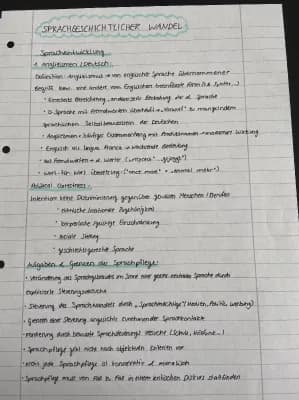 SPRACHGESCHICHTLICHER WANDEL
Sprachentwicklung
1. Anglizismen / Deutsch:
Definition: Anglizismus → von englischer Sprache übernommener
Begriff bzw. eine andere vom Englischen beeinflusste Form (z.B. Syntax...)
• Einerseits Bereicherung, andererseits Bedrohung der d. Sprache
• D. Sprache mit Fremdwörtern überhäuft → zu mangelndem
sprachlichen Selbstbewusstsein der Deutschen
• Anglizismen häufiger Zusammenhang mit Produktnamen → moderner Wirkung
• Englisch als lingua franca → wachsende Bedeutung
• aus Fremdwörtern → d. Wörter
• Wort-für-Wort Übersetzung
Political Correctness:
Intention: keine Diskriminierung gegenüber gewissen Menschen / Berufen
• ethnische / nationale Zugehörigkeit
• körperliche / geistige Einschränkung
• soziale Stellung
• geschlechtergerechte Sprache
Aufgaben & Grenzen der Sprachpflege:
• Veränderung des Sprachgebrauchs im Sinne einer gerechten Sprache durch
explizierte Steuerungsversuche
• Steuerung des Sprachwandels durch „Sprachmächtige" (Medien, Politik, Werbung)
• Grenzen einer Steuerung angesichts zunehmender Sprachkontakte
• Förderung durch bewusste
• Sprachpflege geht nicht nach objektiven Kriterien vor
• Nicht jede Sprachpflege ist konservativ & moralisch
• Sprachpflege muss von Fall zu Fall in einem kritischen Diskurs stattfinden